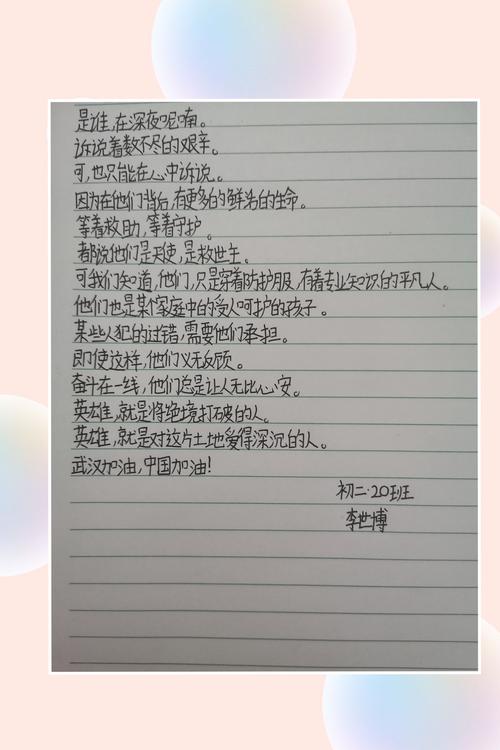 是谁,在深夜呢喃。
诉说着数不尽的艰辛。
可,也只能在心中诉说。
因为在他们背后,有更多的鲜活的生命。
等着救助,等着守护。
都说他们是天使,是救世主。
可我们知道,他们,只是穿着防护服,有着专业知识的平凡人。
他们也是某个家庭中的受人呵护的孩子。
某些人犯的过错,需要他们承担。
即使这样,他们义无反顾。
奋斗在一线,他们总是让人无比心安。
英雄,就是将绝境打破的人。
英雄,就是对这片土地爱得深沉的人。
武汉加油,中国加油!
初二·20班
李世博